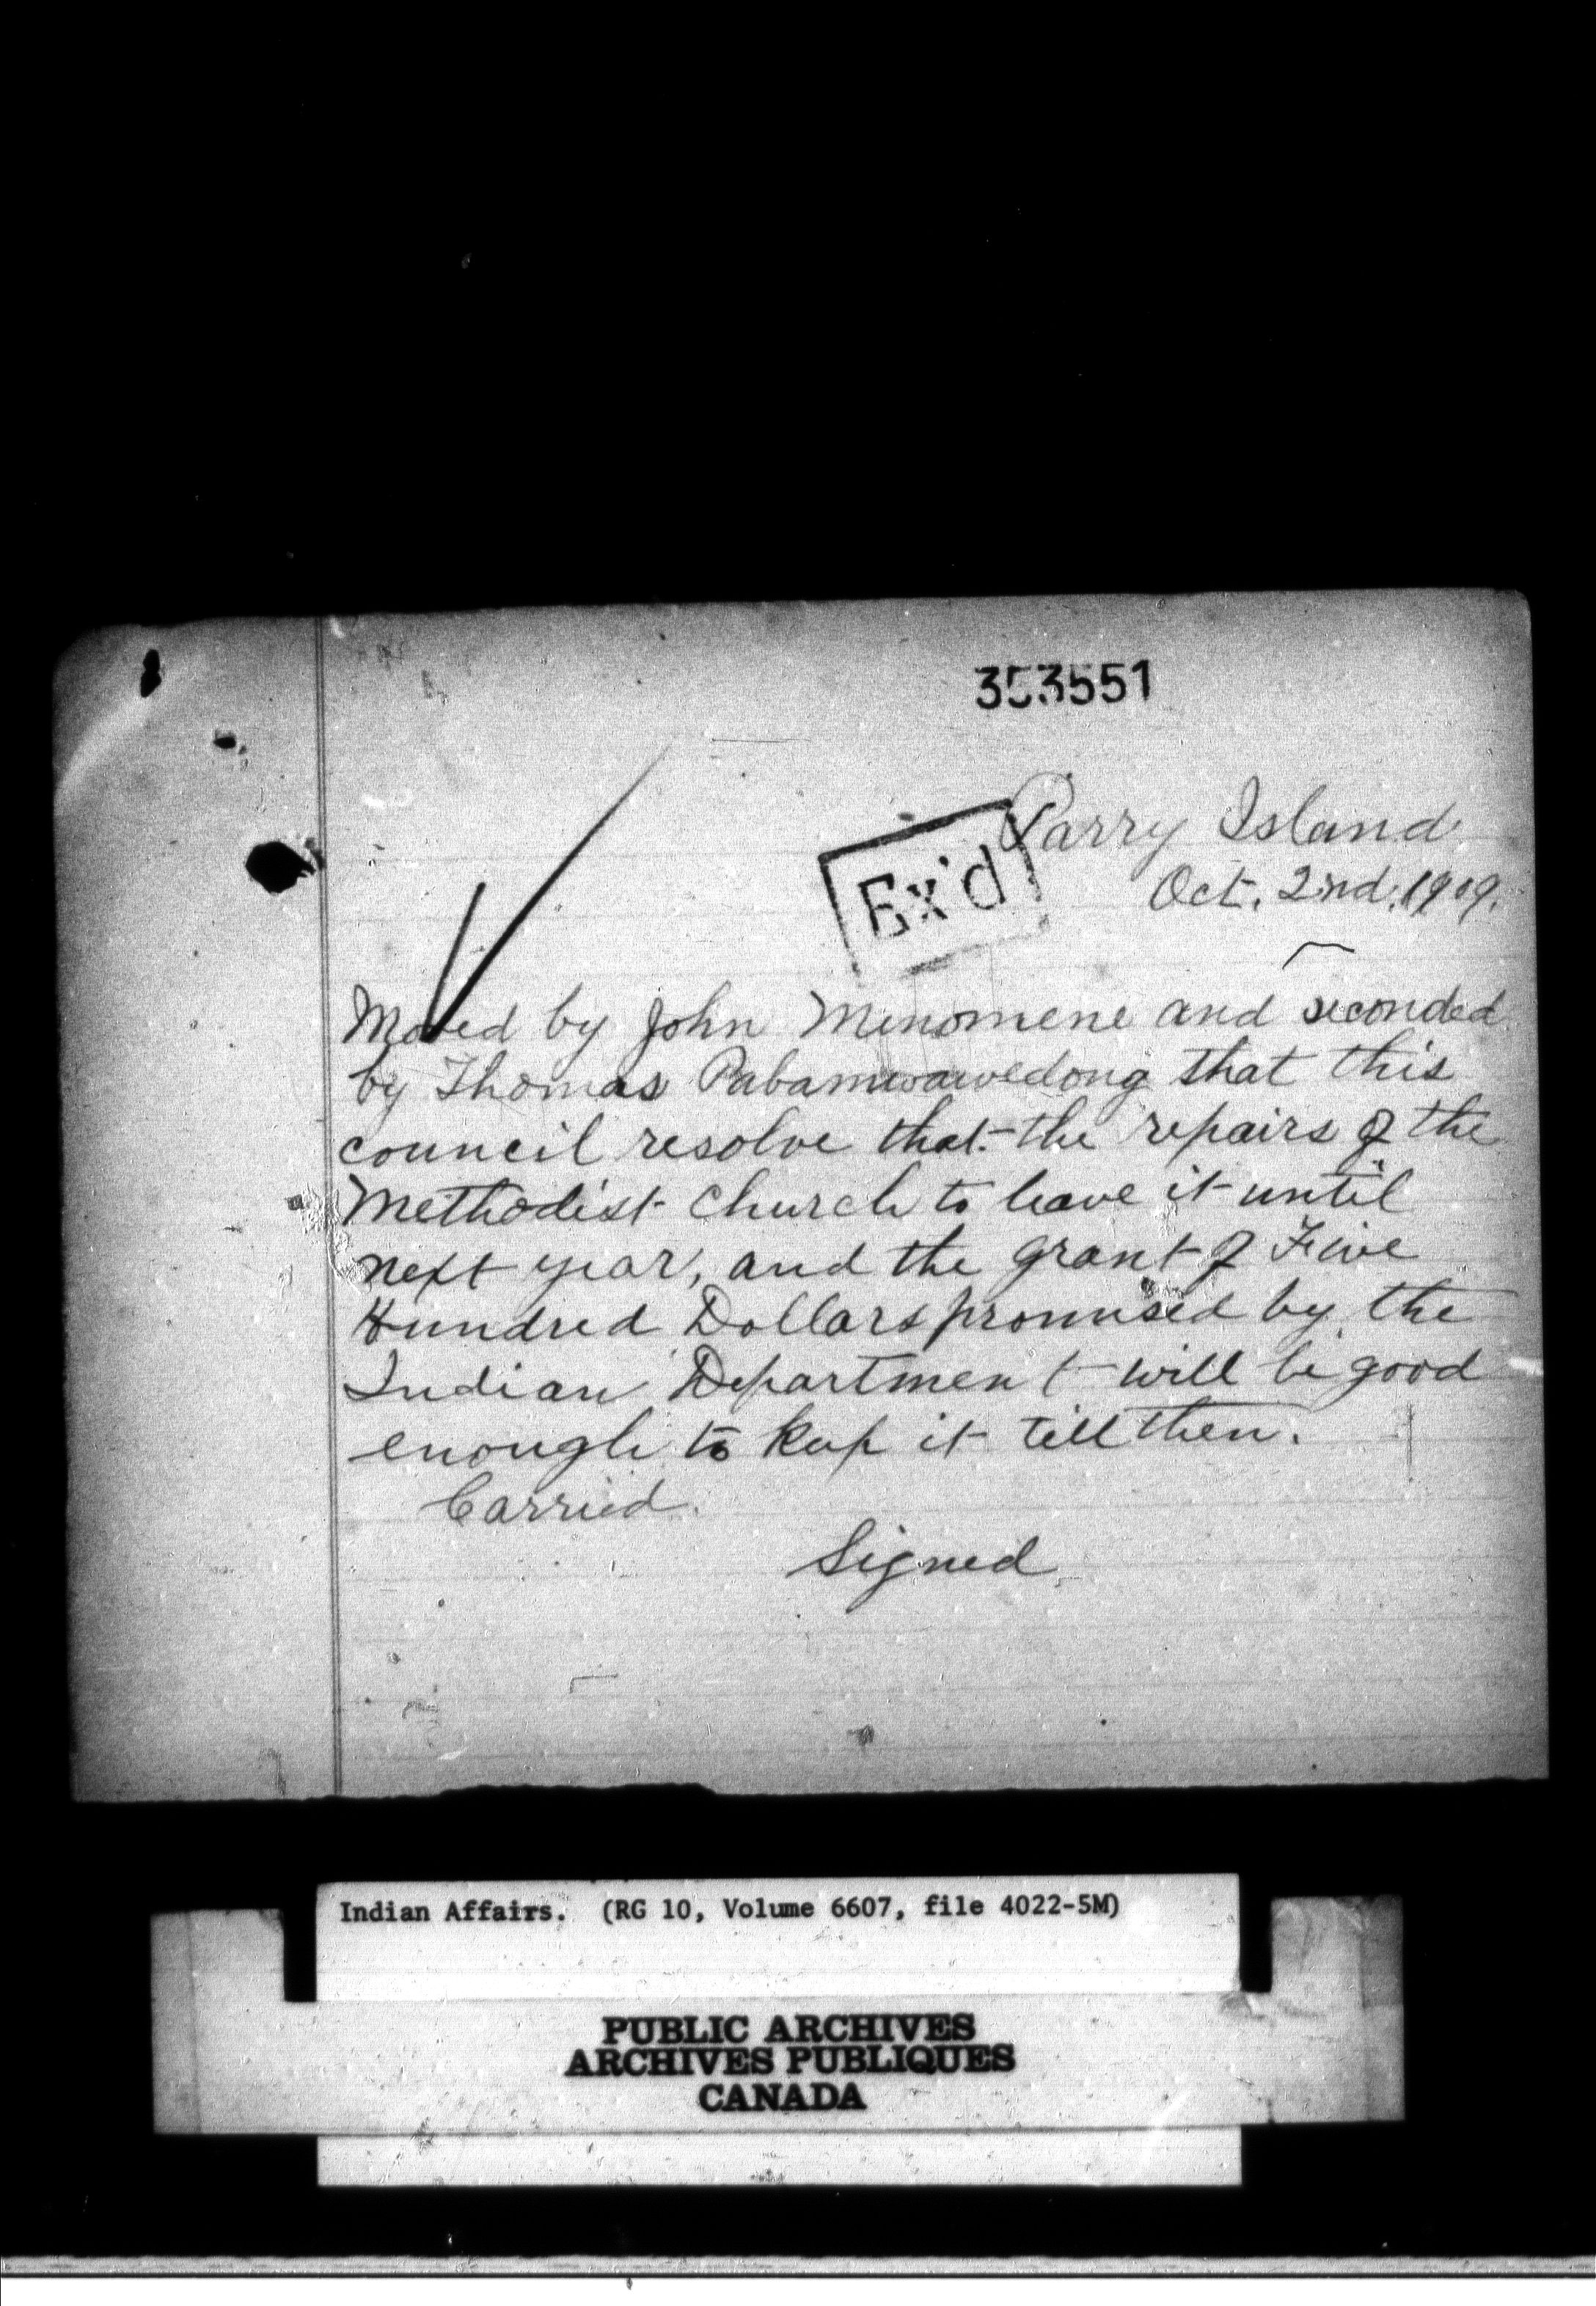 353551
Parry Island
Ex'd
Oct. 2nd. 1909.
Moved by John Menomene and seconded
by Thomas Pabamwawedong that this
council resolve that the repairs of the
Methodist Church to leave it until
next year, and the grant of Five
Hundred Dollars promised by the
Indian Department will be good
enough to keep it till then.
Carried.
Signed
Indian Affairs. (RG 10, Volume 6607, file 4022-5M)
PUBLIC ARCHIVES
ARCHIVES PUBLIQUES
CANADA